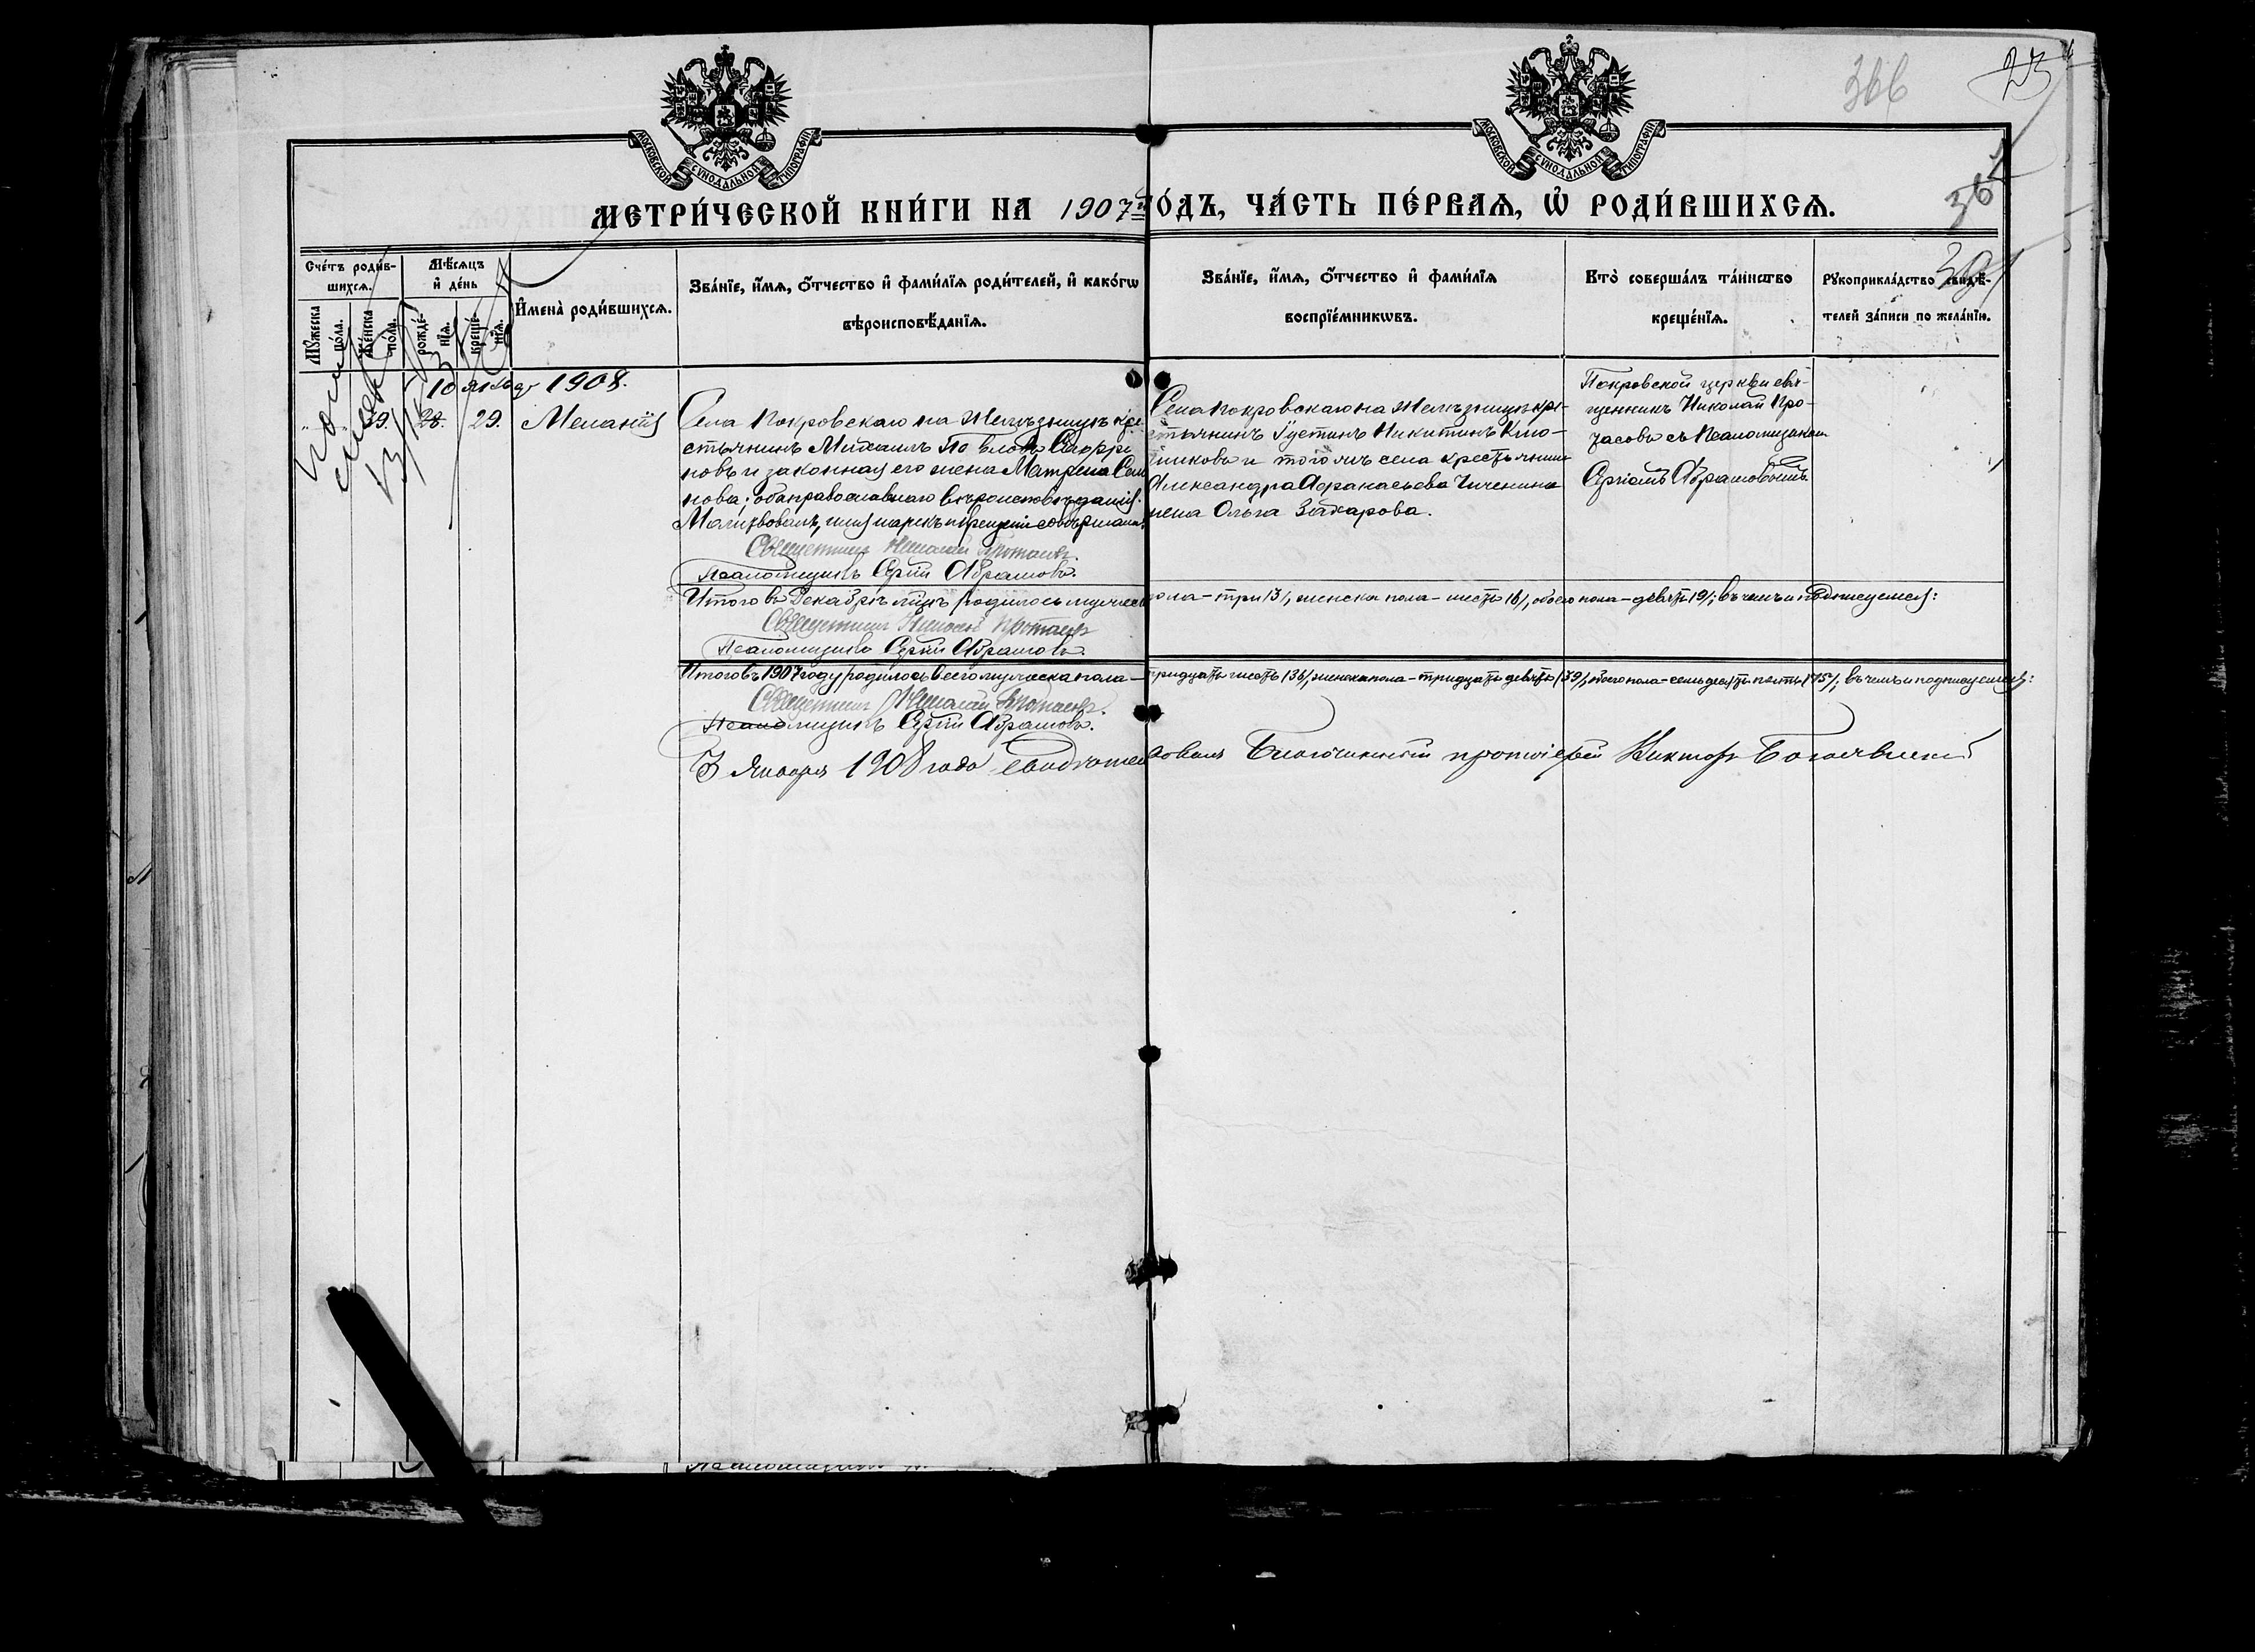 366
25
МОСКОВСКОЙ СѴНОДАЛЬНОЙ ТИПОГРАФІИ
МОСКОВСКОЙ СѴНОДАЛЬНОЙ ТИПОГРАФІИ
МЕТРИ́ЧЕСКОЙ КНИ́ГИ НА 1907й ГО́ДЪ, ЧА́СТЬ ПЕ́РВАѦ, Ѡ҆ РОДИ́ВШИХСѦ.
Сче́тъ роди́в-
шихсѧ.
Мѣ́сѧцъ
и҆ де́нь
Мꙋ́жеска
по́ла.
Же́нска
по́ла.
рожде́-
нїѧ.
креще́-
нїѧ.
И҆мена̀ роди́вшихсѧ.
Зва́нїе, и҆́мѧ, ѻ҆́тчество и҆ фами́лїѧ роди́телей, и҆ како́гѡ
вѣроисповѣ́данїѧ.
Зва́нїе, и҆́мѧ, ѻ҆́тчество и҆ фами́лїѧ
воспрїе́мникѡвъ.
Кто̀ соверша́лъ та́инство
креще́нїѧ.
Рꙋкоприкла́дство свидѣ́-
телей за́писи по жела́нїю.
1908.
39. 28. 29. Меланія
Села Покровскаго на Желѣзницѣ кре
стьянинъ Михаилъ
новъ и законная его жена Матрена Сем
нова; оба православнаго вѣроисповѣданія.
Священникъ Николай
Псаломщикъ Сергій Абрамовъ.
Села Покровскаго на Желѣзницѣ кре-
стьянинъ Густинъ Никитинъ Клю-
шниковъ и того жъ села крестьянина
Александра Афанасьева Чиченина
жена Ольга Захарова.
Покровской церкви свя-
щенникъ Николай Про-
тасовъ съ Псаломщикомъ
Сергіемъ Абрамовымъ
Итого въ Декабрѣ мцѣ родилось мужеск пола – три /3/, женска пола – шесть /6/, обоего пола – девять /9/; въ чемъ и подписуемся:
Священникъ Николай Протасовъ
Псаломщикъ Сергій Абрамовъ.
Итого въ 1907 году родилось всего мужеска пола – тридцать шесть /36/, женска пола – тридцать девять /39/, обоего пола – семьдесятъ пять /75/; въ чемъ и подписуемся:
Священникъ Николай Протасовъ.
Псаломщикъ Сергій Абрамовъ.
3 Января 1908 года свидѣтельствовалъ Благочинный протоіерей Викторъ Богоявленскій